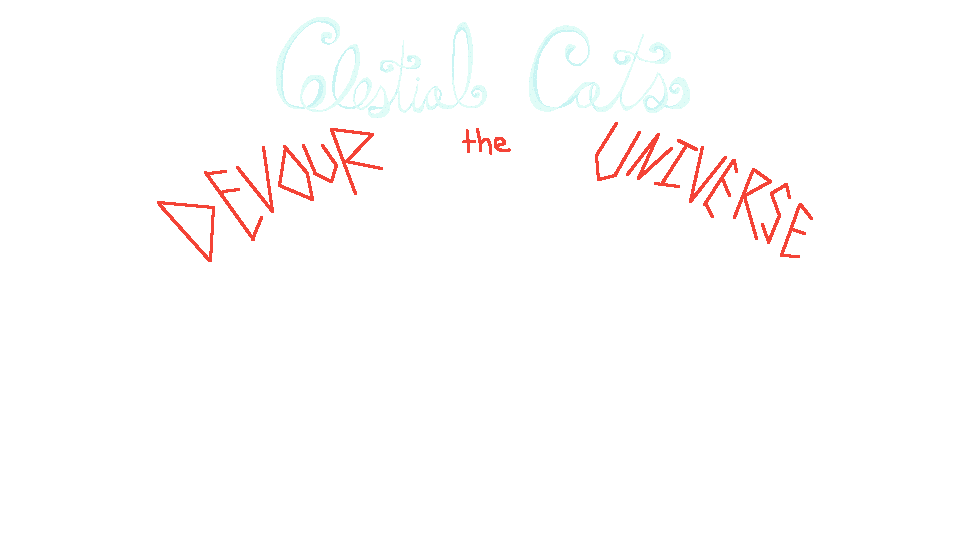 Celestial Cats
DEVOUR the UNIVERSE